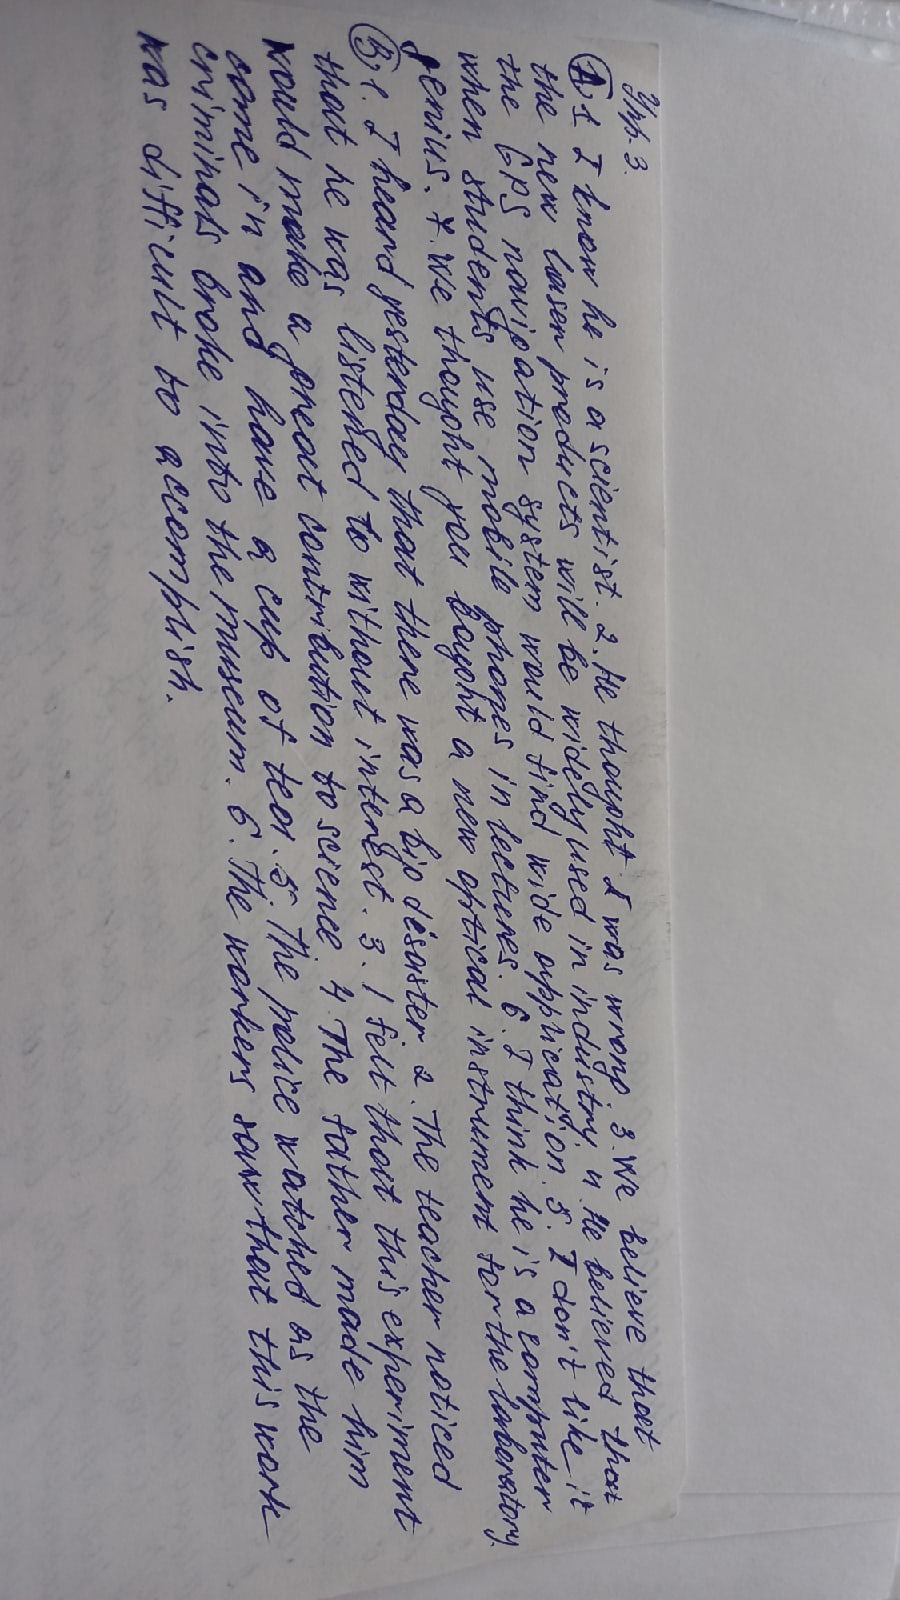 Упр. 3.
A) 1 I know he is a scientist. 2. He thought I was wrong. 3. We believe that
the new laser products will be widely used in industry 4. He believed that
the GPS navigation system would find wide application. 5. I don't like it
when students use mobile phones in lectures. 6. I think he is a computer
genius. 7. We thought you bought a new optical instrument for the laboratory.
B) 1. I heard yesterday that there was a big disaster 2. The teacher noticed
that he was listened to without interest. 3. I felt that this experiment
would make a great contribution to science. 4. The father made him
come in and have a cup of tea. 5. The police watched as the
criminals broke into the museum. 6. The workers saw that this work
was difficult to accomplish.